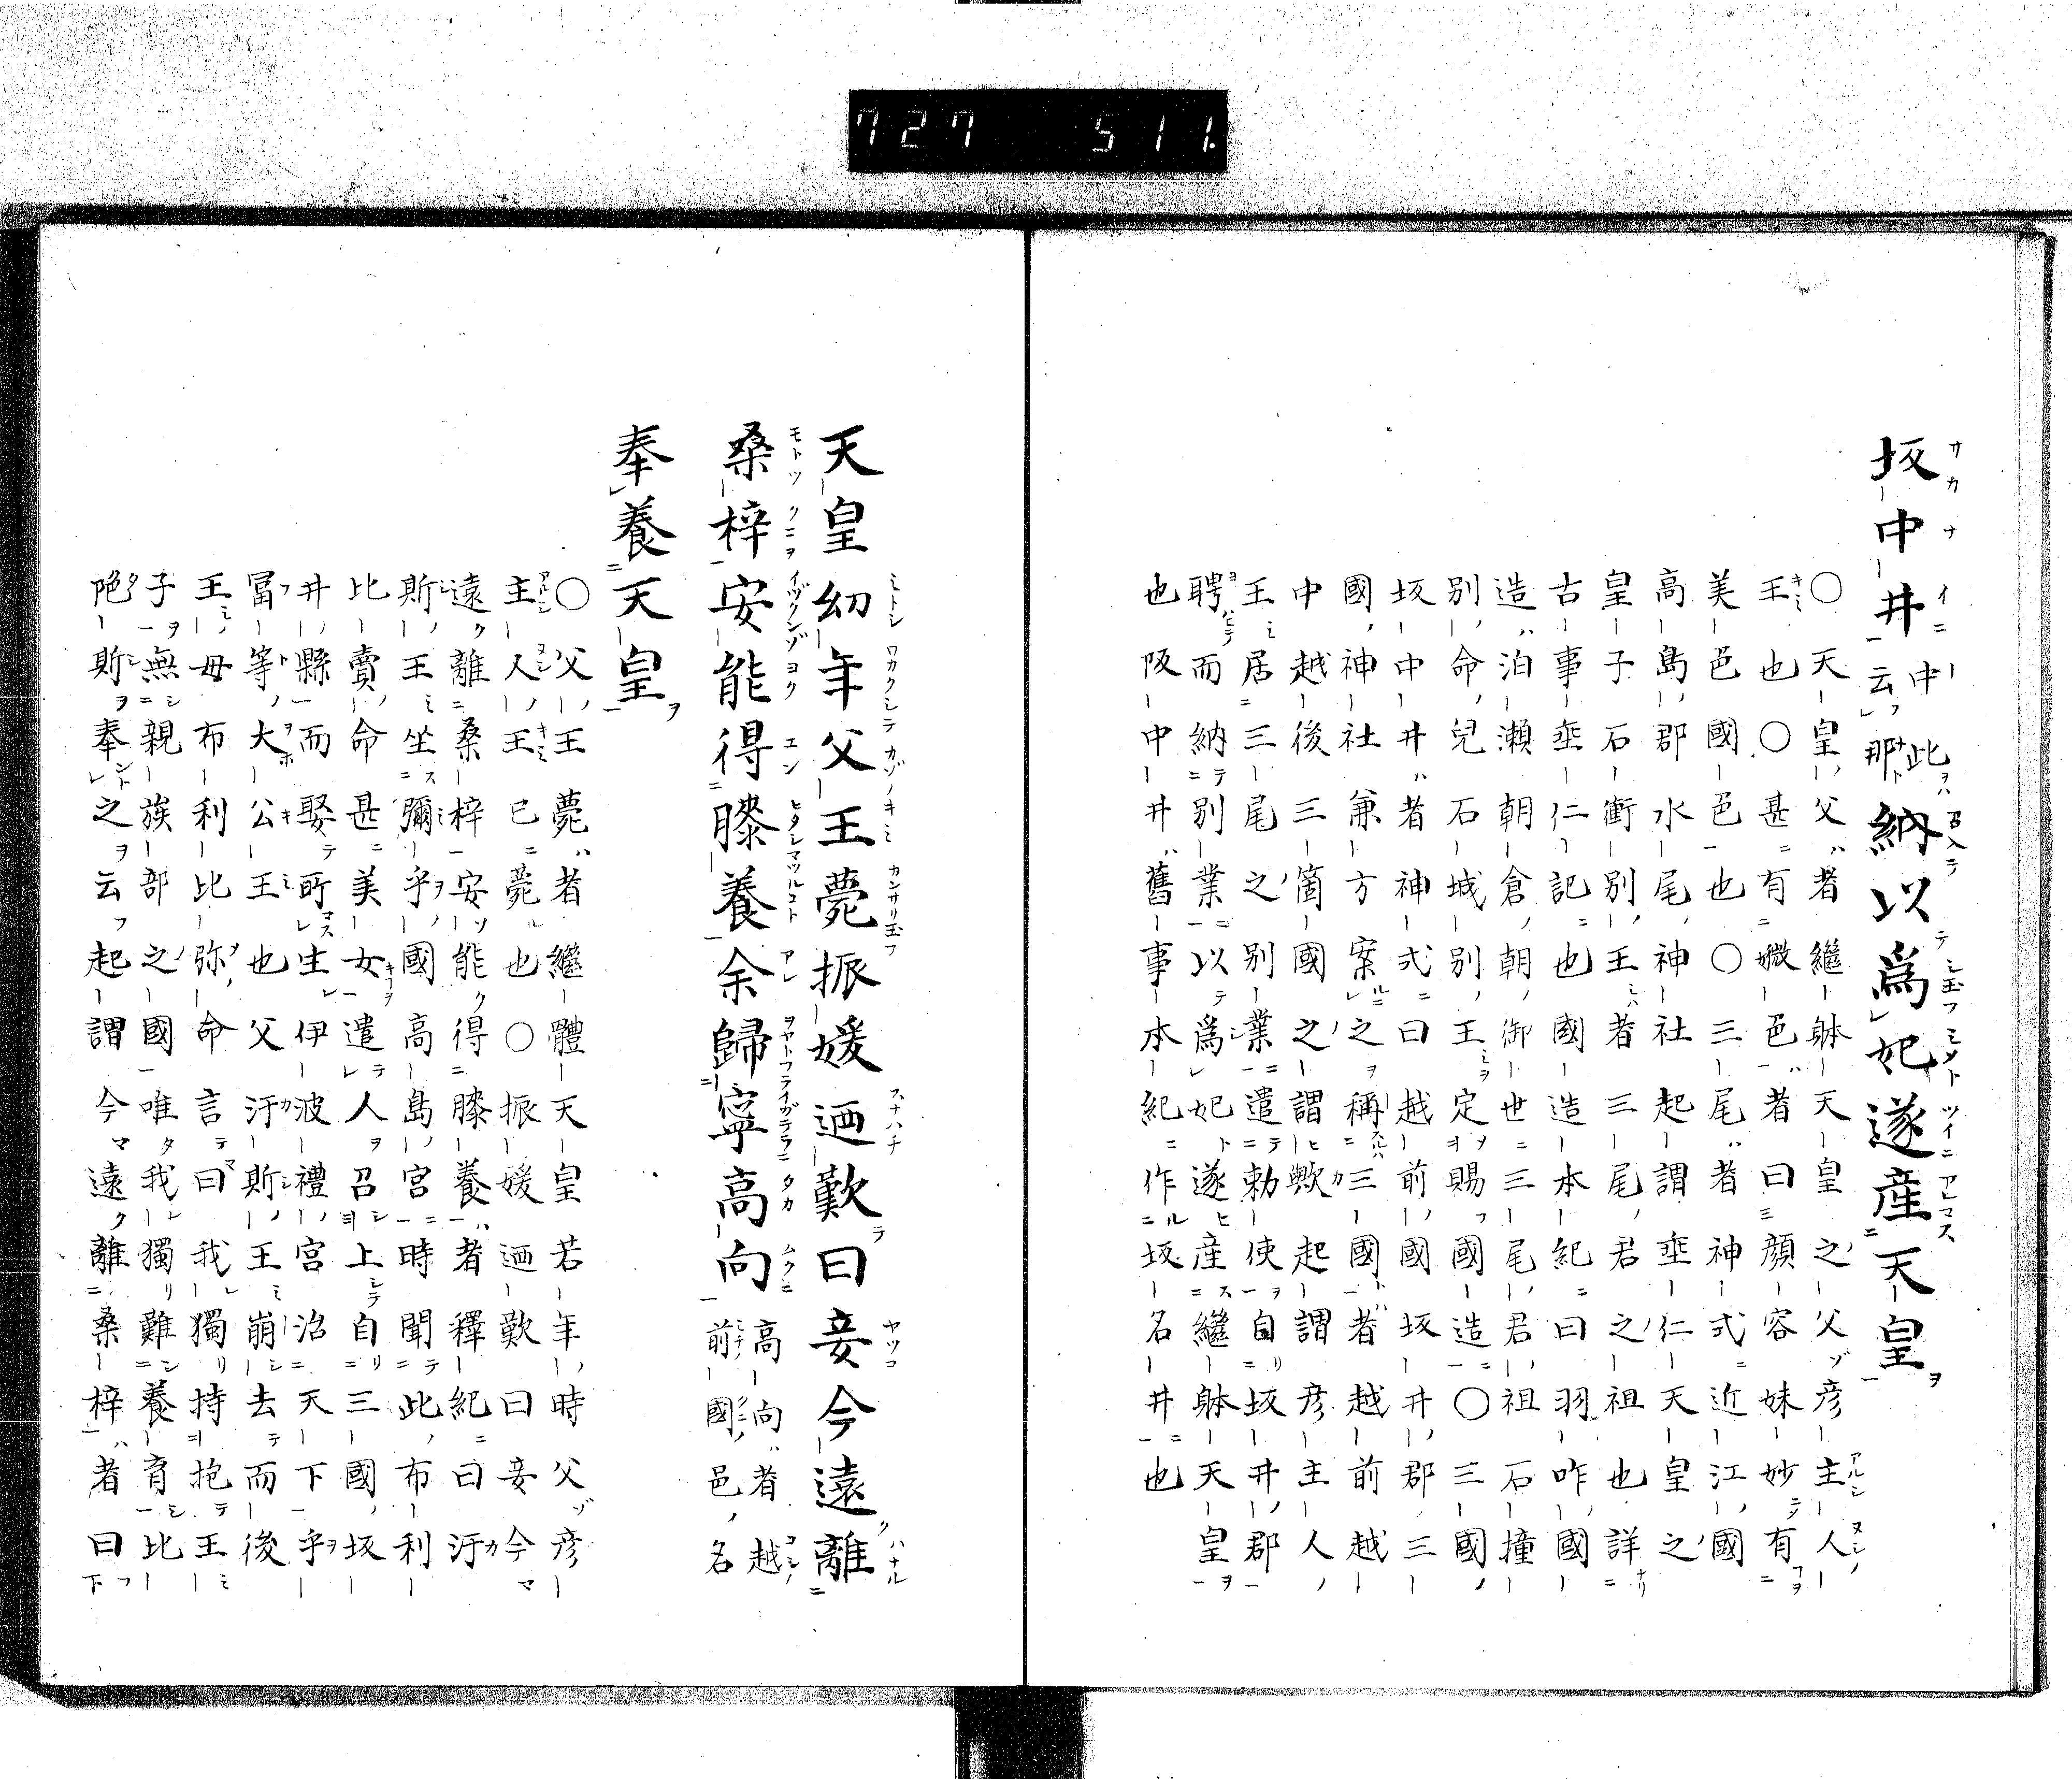 727 511.
坂中井中此云那納以爲妃遂産天皇
〇天皇父者繼躰天皇之父彦主人
王也〇甚有媺邑者曰顔容姝妙有
美邑國邑也〇三尾者神式近江國
高島郡水尾神社起謂垂仁天皇之
皇子石衝別王者三尾君之祖也詳
古事垂仁記也國造本紀曰羽咋國
造泊瀬朝倉朝御世三尾君祖石撞
別命兒石城別王定賜國造〇三國
坂中井者神式曰越前國坂井郡三
國神社兼方案之稱三國者越前越
中越後三箇國之謂歟起謂彦主人
王居三尾之別業遣勅使自坂井郡
聘而納別業以爲妃遂産繼躰天皇
也阪中井舊事本紀作坂名井也
天皇幼年父王薨振媛廼歎曰妾今遠離
桑梓安能得膝養余歸寧高向高向者越前國邑名
奉養天皇
〇父王薨者繼體天皇若年時父彦
主人王已薨也〇振媛廼歎曰妾今
遠離桑梓安能得膝養者釋紀曰汙
斯王坐彌乎國高島宮時聞此布利
比賣命甚美女遣人召上自三國坂
井縣而娶所生伊波禮宮治天下乎
冨等大公王也父汙斯王崩去而後
王母布利比弥命言曰我獨持抱王
子無親族部之國唯我獨難養育比
陁斯奉之云起謂今遠離桑梓者曰下